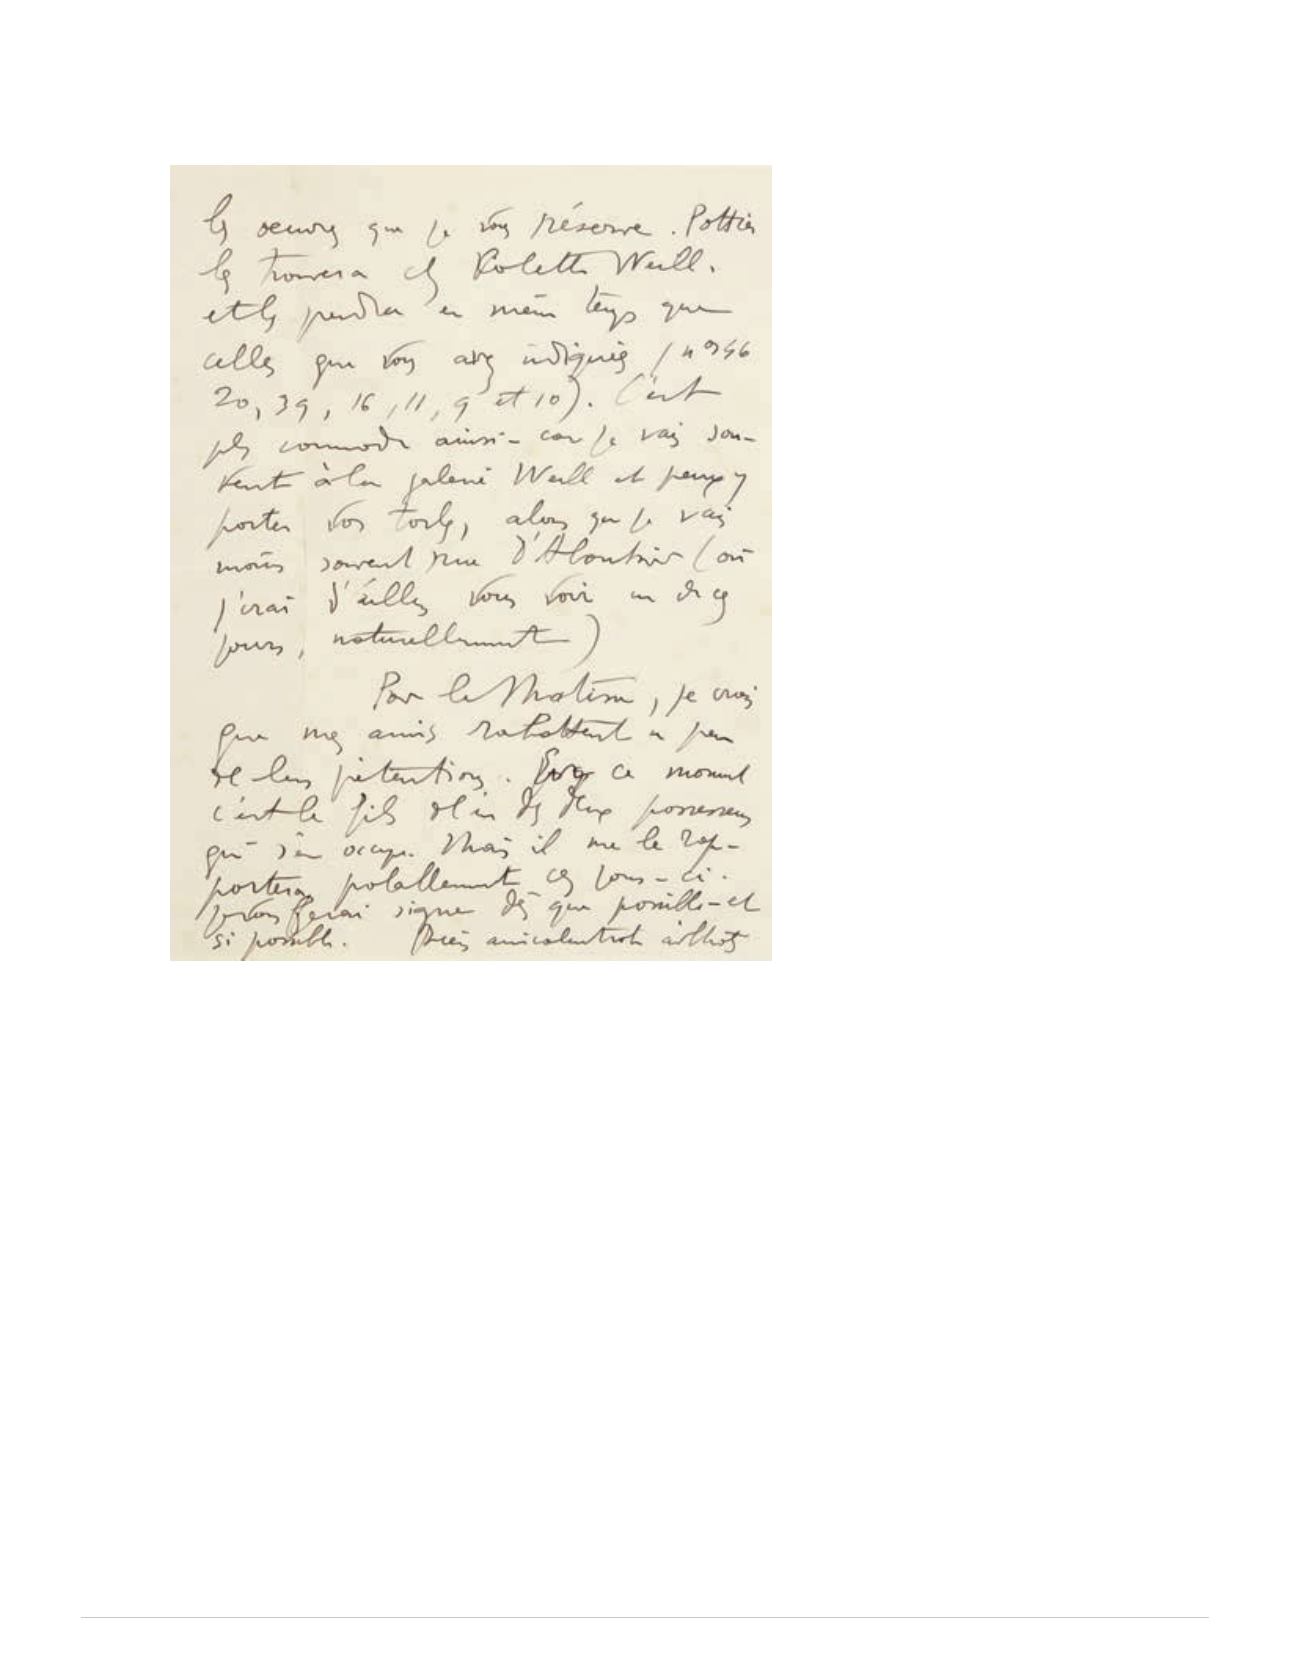 les oeuvres que je vous réserve. Pottier
les trouvera chez Colette Weill.
et les prendra en même temps que
celles que vous avez indiquées (nos 46
20, 39, 16, 11, 9 et 10). C'est
plus commode ainsi - car je vais sou-
vent à la galerie Weill et peux y
porter vos toiles, alors que je vais
moins souvent rue d'Aboukir (où
j'irai d'ailleurs vous voir un de ces
jours, naturellement)
Pour le Matisse, je crois
que mes amis rabattent un peu
de leurs prétentions. ce moment
c'est le fils de l'un des deux possesseurs
qui s'en occupe. Mais il me le rap-
portera probablement ces jours-ci.
je vous ferai signe dès que possible - et
si possible. amicalement